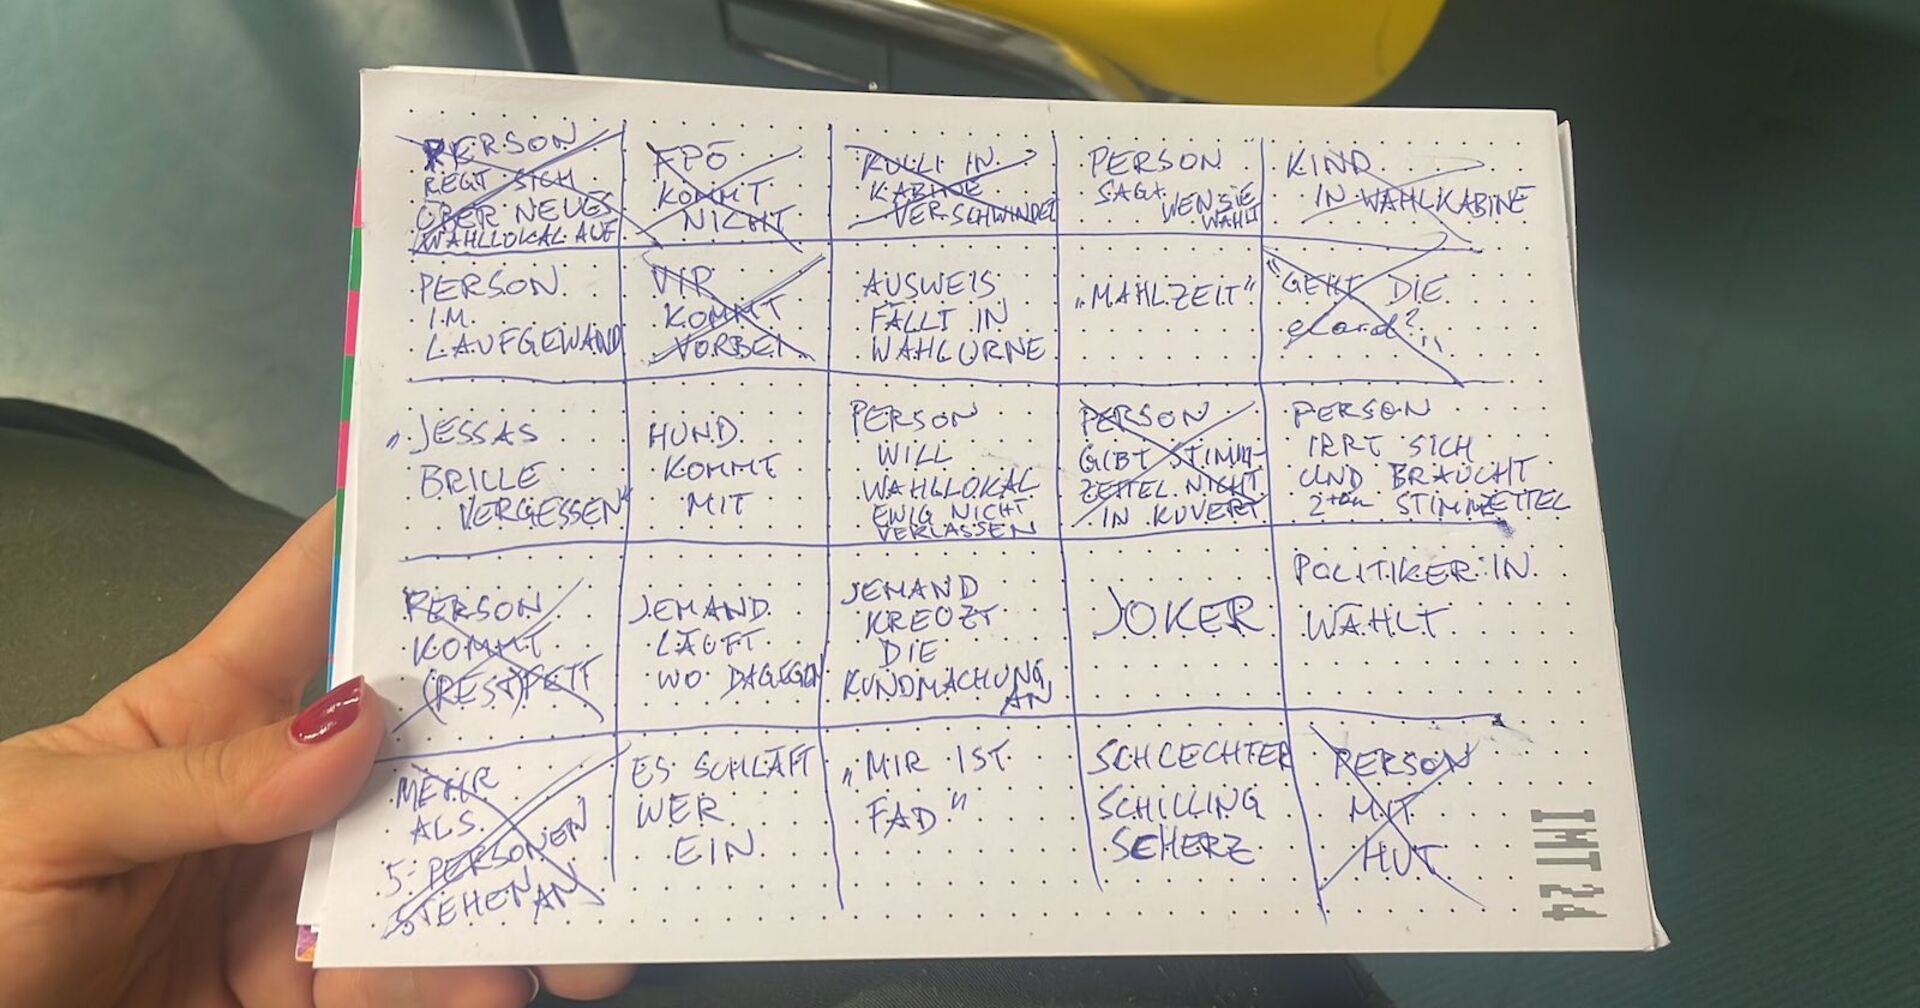 PERSON
REGT SICH
ÜBER NEUES
WAHLLOKAL AUF
FPÖ
KOMMT
NICHT
KULLI IN
KABINE
VERSCHWINDET
PERSON
SAGT
WEN SIE
WÄHLT
KIND
IN WAHLKABINE
PERSON
IM
LAUFGEWAND
VIP
KOMMT
VORBEI
AUSWEIS
FÄLLT IN
WAHLURNE
„MAHLZEIT"
"GEHT DIE
eCard?"
„JESSAS
BRILLE
VERGESSEN"
HUND
KOMMT
MIT
PERSON
WILL
WAHLLOKAL
EWIG NICHT
VERLASSEN
PERSON
GIBT STIMM-
ZETTEL NICHT
IN KUVERT
PERSON
IRRT SICH
UND BRAUCHT
2ten STIMMZETTEL
PERSON
KOMMT
(REST)FETT
JEMAND
LÄUFT
WO DAGEGEN
JEMAND
KREUZT
DIE
KUNDMACHUNG
AN
JOKER
POLITIKER:IN
WÄHLT
MEHR
ALS
5 PERSONEN
STEHEN AN
ES SCHLÄFT
WER
EIN
„MIR IST
FAD"
SCHLECHTER
SCHILLING
SCHERZ
PERSON
MIT
HUT